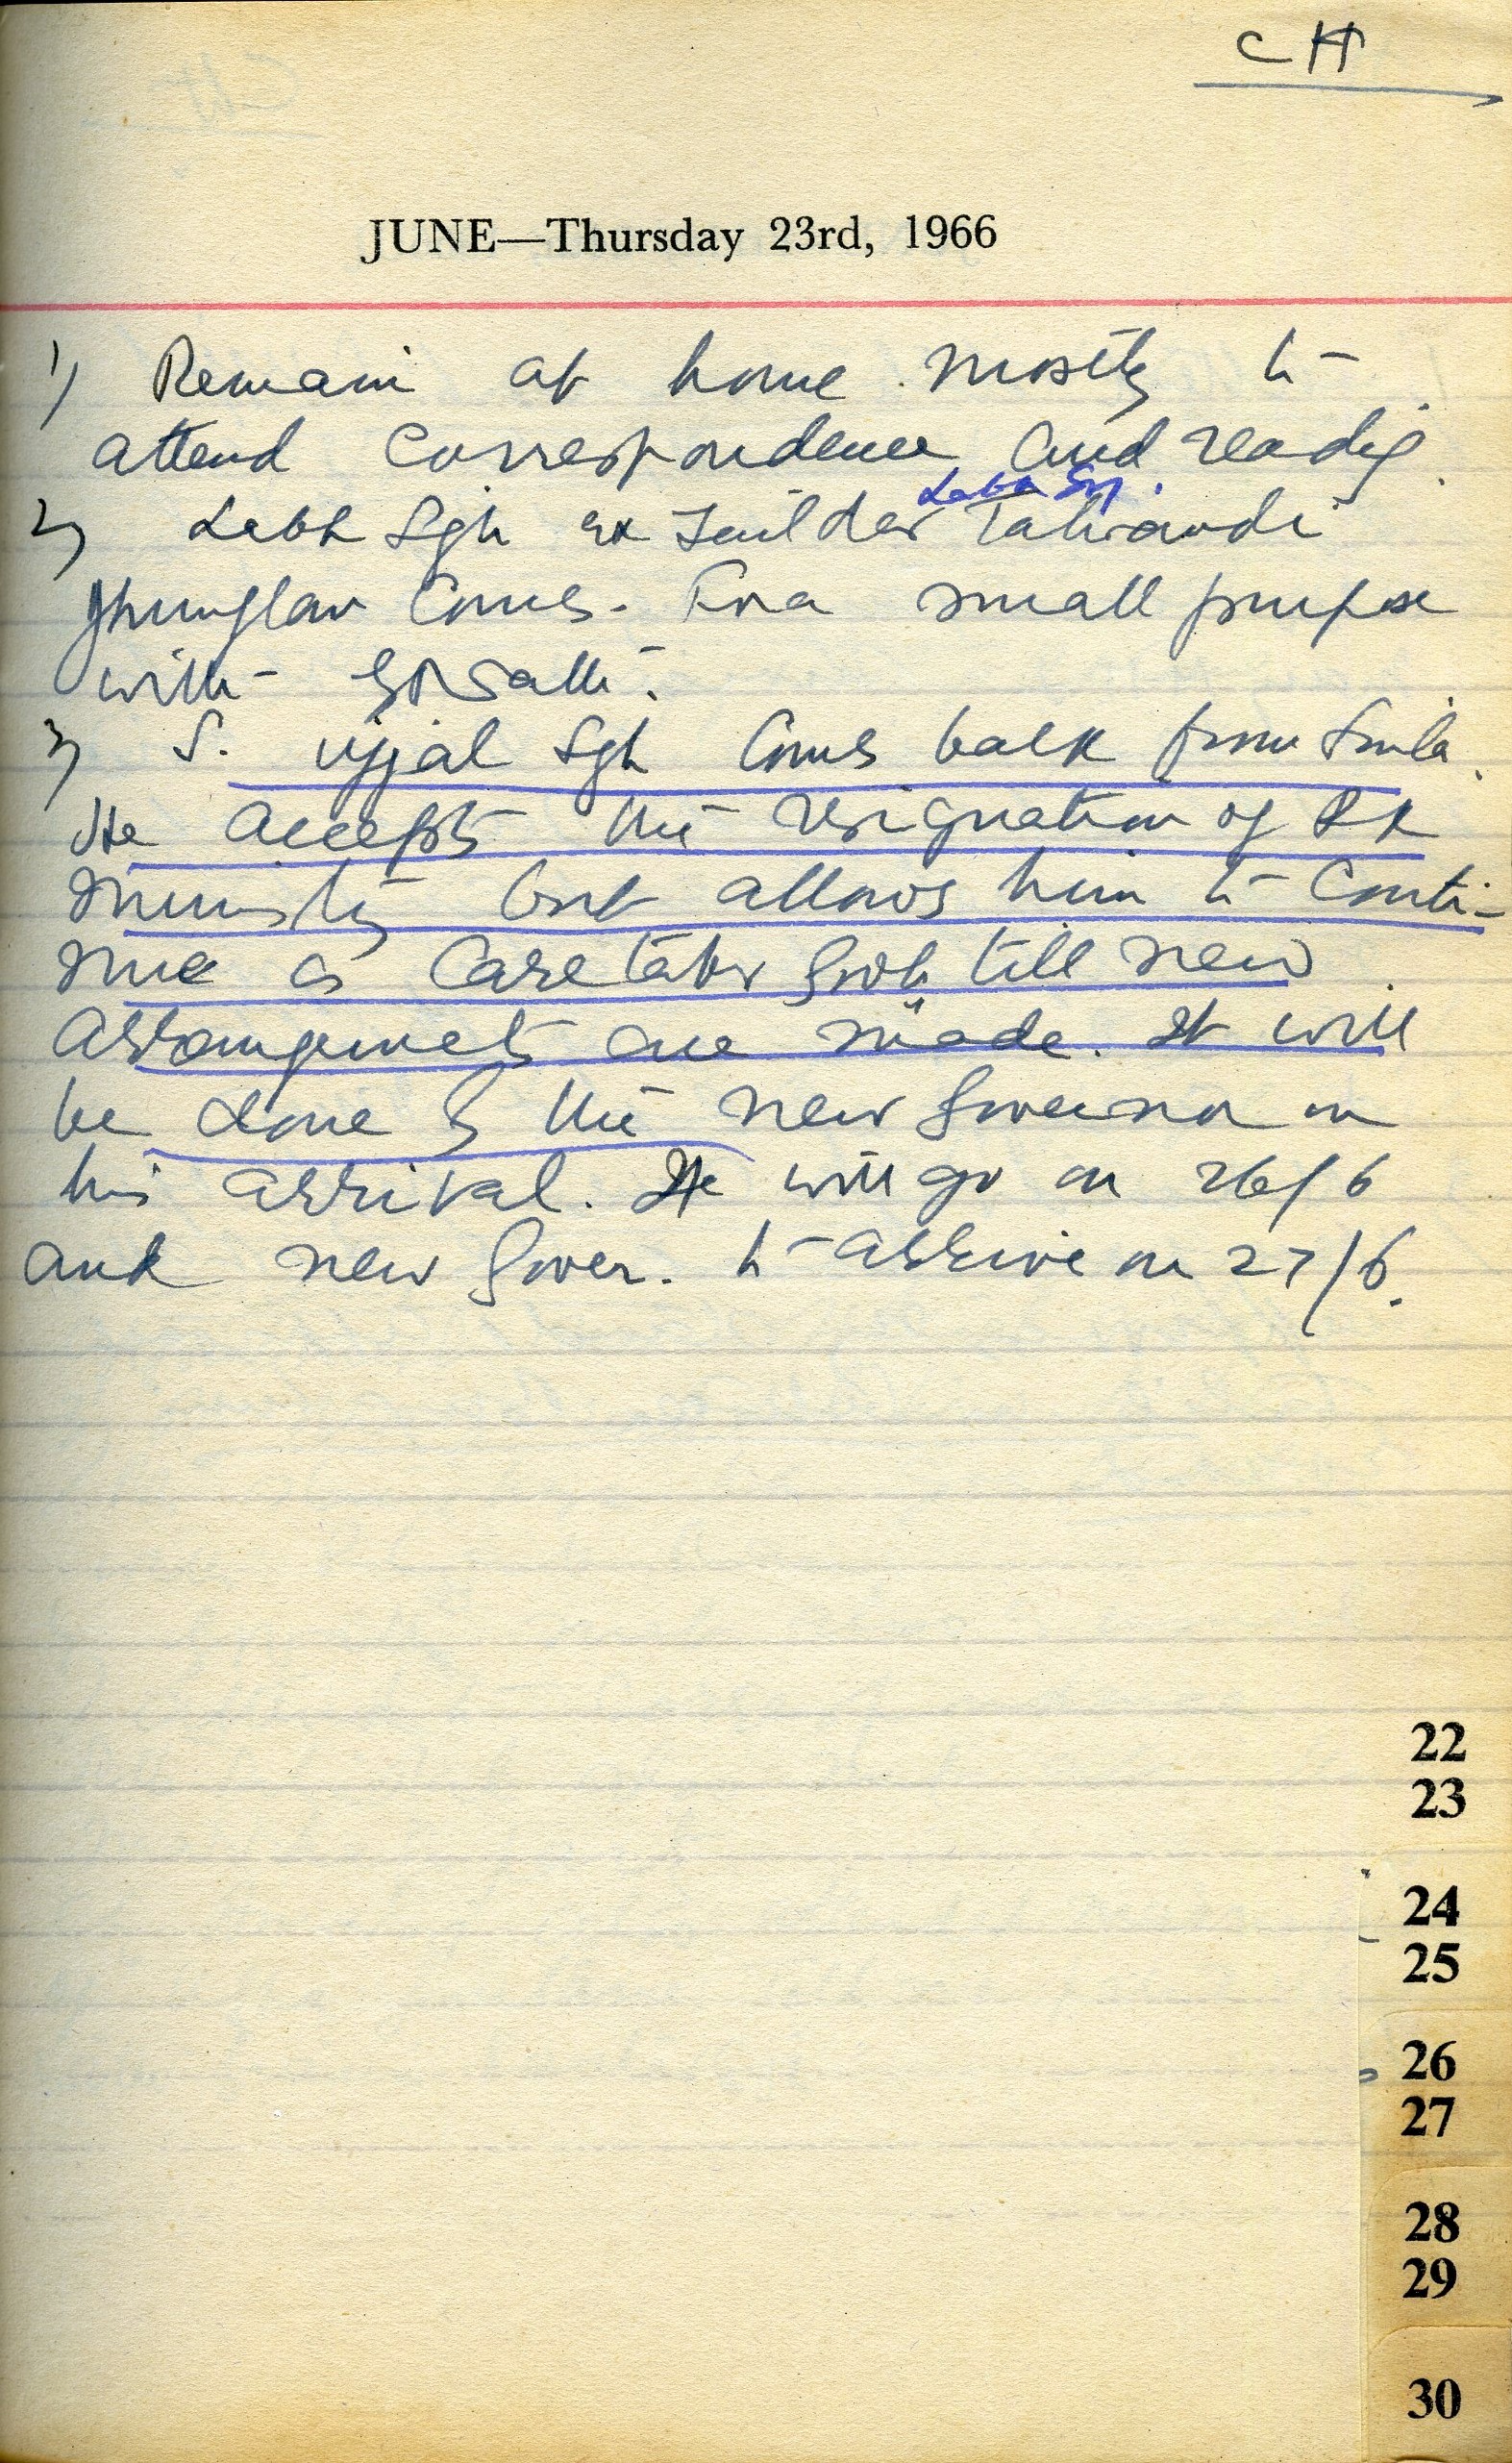 CH
JUNE—Thursday 23rd, 1966
1) Remain at home mostly to
attend correspondence and reading.
Labh Sgh.
2) Labh Sgh ex Zaildar Talwandi
Jhunglan comes. For a small purpose
with
3) S. Ujjal Sgh comes back from Simla.
He accepts the resignation of RK
ministry but allows him to conti-
nue as caretaker Govt till new
arrangements are made. It will
be done by the new Governor on
his arrival. He will go on 26/6
and new Gover. to arrive on 27/6.
22
23
24
25
26
27
28
29
30